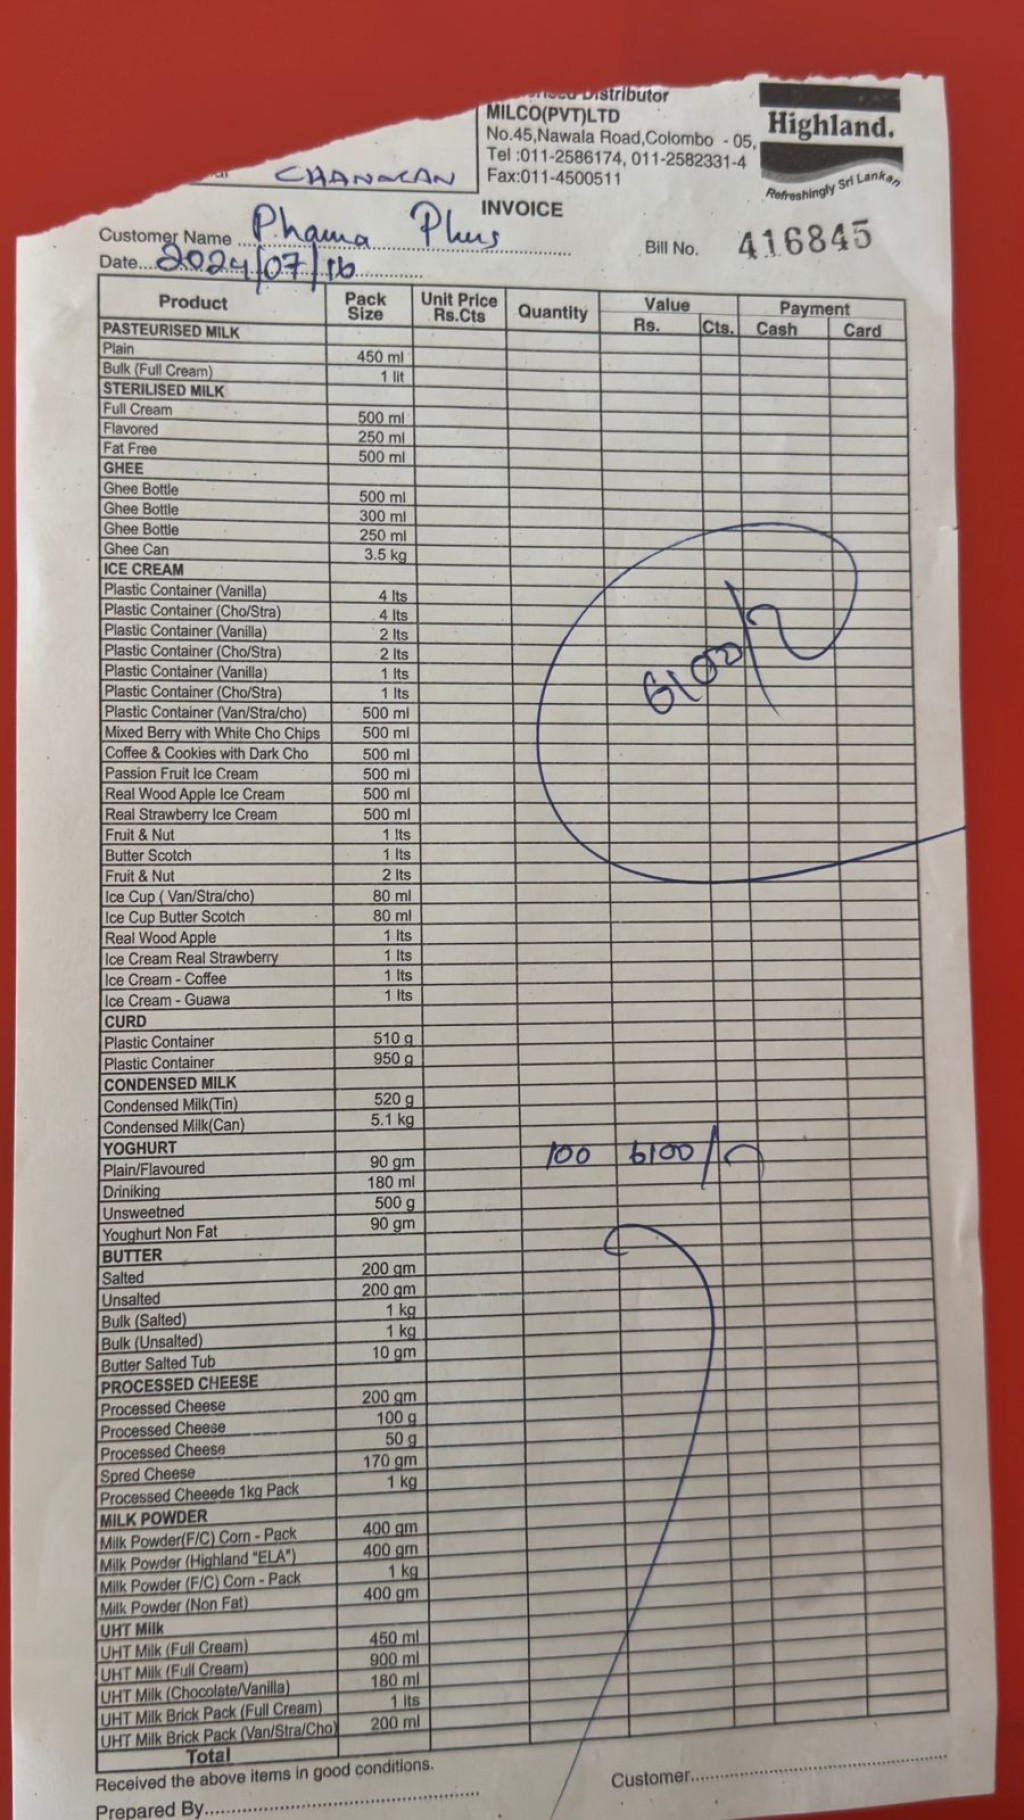 Distributor
MILCO(PVT)LTD
No.45,Nawala Road,Colombo - 05,
Tel :011-2586174, 011-2582331-4
Fax:011-4500511
Highland.
Refreshingly Sri Lankan
INVOICE
Customer Name Phama Plus
Bill No. 416845
Date 2024/07/16
Product Pack Size Unit Price Rs.Cts Quantity Value Rs. Cts. Payment Cash Card
PASTEURISED MILK
Plain 450 ml
Bulk (Full Cream) 1 lit
STERILISED MILK
Full Cream 500 ml
Flavored 250 ml
Fat Free 500 ml
GHEE
Ghee Bottle 500 ml
Ghee Bottle 300 ml
Ghee Bottle 250 ml
Ghee Can 3.5 kg
ICE CREAM
Plastic Container (Vanilla) 4 lts
Plastic Container (Cho/Stra) 4 lts
Plastic Container (Vanilla) 2 lts
Plastic Container (Cho/Stra) 2 lts
Plastic Container (Vanilla) 1 lts
Plastic Container (Cho/Stra) 1 lts
Plastic Container (Van/Stra/cho) 500 ml
Mixed Berry with White Cho Chips 500 ml
Coffee & Cookies with Dark Cho 500 ml
Passion Fruit Ice Cream 500 ml
Real Wood Apple Ice Cream 500 ml
Real Strawberry Ice Cream 500 ml
Fruit & Nut 1 lts
Butter Scotch 1 lts
Fruit & Nut 2 lts
Ice Cup ( Van/Stra/cho) 80 ml
Ice Cup Butter Scotch 80 ml
Real Wood Apple 1 lts
Ice Cream Real Strawberry 1 lts
Ice Cream - Coffee 1 lts
Ice Cream - Guawa 1 lts
6100/
CURD
Plastic Container 510 g
Plastic Container 950 g
CONDENSED MILK
Condensed Milk(Tin) 520 g
Condensed Milk(Can) 5.1 kg
YOGHURT
Plain/Flavoured 90 gm 100 6100/
Driniking 180 ml
Unsweetned 500 g
Youghurt Non Fat 90 gm
BUTTER
Salted 200 gm
Unsalted 200 gm
Bulk (Salted) 1 kg
Bulk (Unsalted) 1 kg
Butter Salted Tub 10 gm
PROCESSED CHEESE
Processed Cheese 200 gm
Processed Cheese 100 g
Processed Cheese 50 g
Spred Cheese 170 gm
Processed Cheeede 1kg Pack 1 kg
MILK POWDER
Milk Powder(F/C) Corn - Pack 400 gm
Milk Powder (Highland "ELA") 400 gm
Milk Powder (F/C) Corn - Pack 1 kg
Milk Powder (Non Fat) 400 gm
UHT Milk
UHT Milk (Full Cream) 450 ml
UHT Milk (Full Cream) 900 ml
UHT Milk (Chocolate/Vanilla) 180 ml
UHT Milk Brick Pack (Full Cream) 1 lts
UHT Milk Brick Pack (Van/Stra/Cho) 200 ml
Total
Received the above items in good conditions.
Customer
Prepared By